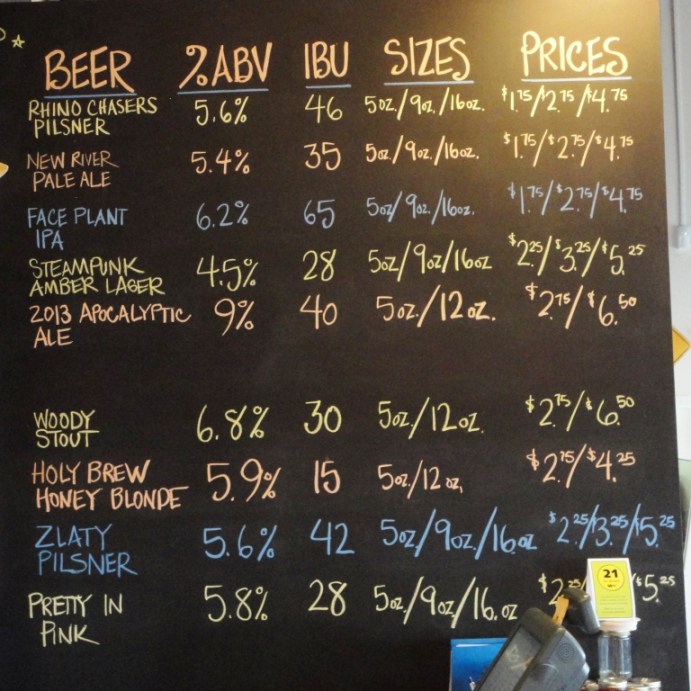 BEER %ABV IBU SIZES PRICES
RHINO CHASERS 5.6% 46 5oz/9oz./16oz. $1.75/$2.75/$4.75
PILSNER
NEW RIVER 5.4% 35 5oz/9oz./16oz. $1.75/$2.75/$4.75
PALE ALE
FACE PLANT 6.2% 65 5oz/9oz./16oz. $1.75/$2.75/$4.75
IPA
STEAMPUNK 4.5% 28 5oz/9oz/16oz $2.25/$3.25/$5.25
AMBER LAGER
2013 APOCALYPTIC 9% 40 5oz/12oz. $2.75/$6.50
ALE
WOODY 6.8% 30 5oz/12oz. $2.75/$6.50
STOUT
HOLY BREW 5.9% 15 5oz/12oz. $2.75/$4.25
HONEY BLONDE
ZLATY 5.6% 42 5oz/9oz/16oz $2.25/$3.25/$5.25
PILSNER
PRETTY IN 5.8% 28 5oz/9oz/16.oz $2.25/ /$5.25
PINK
21